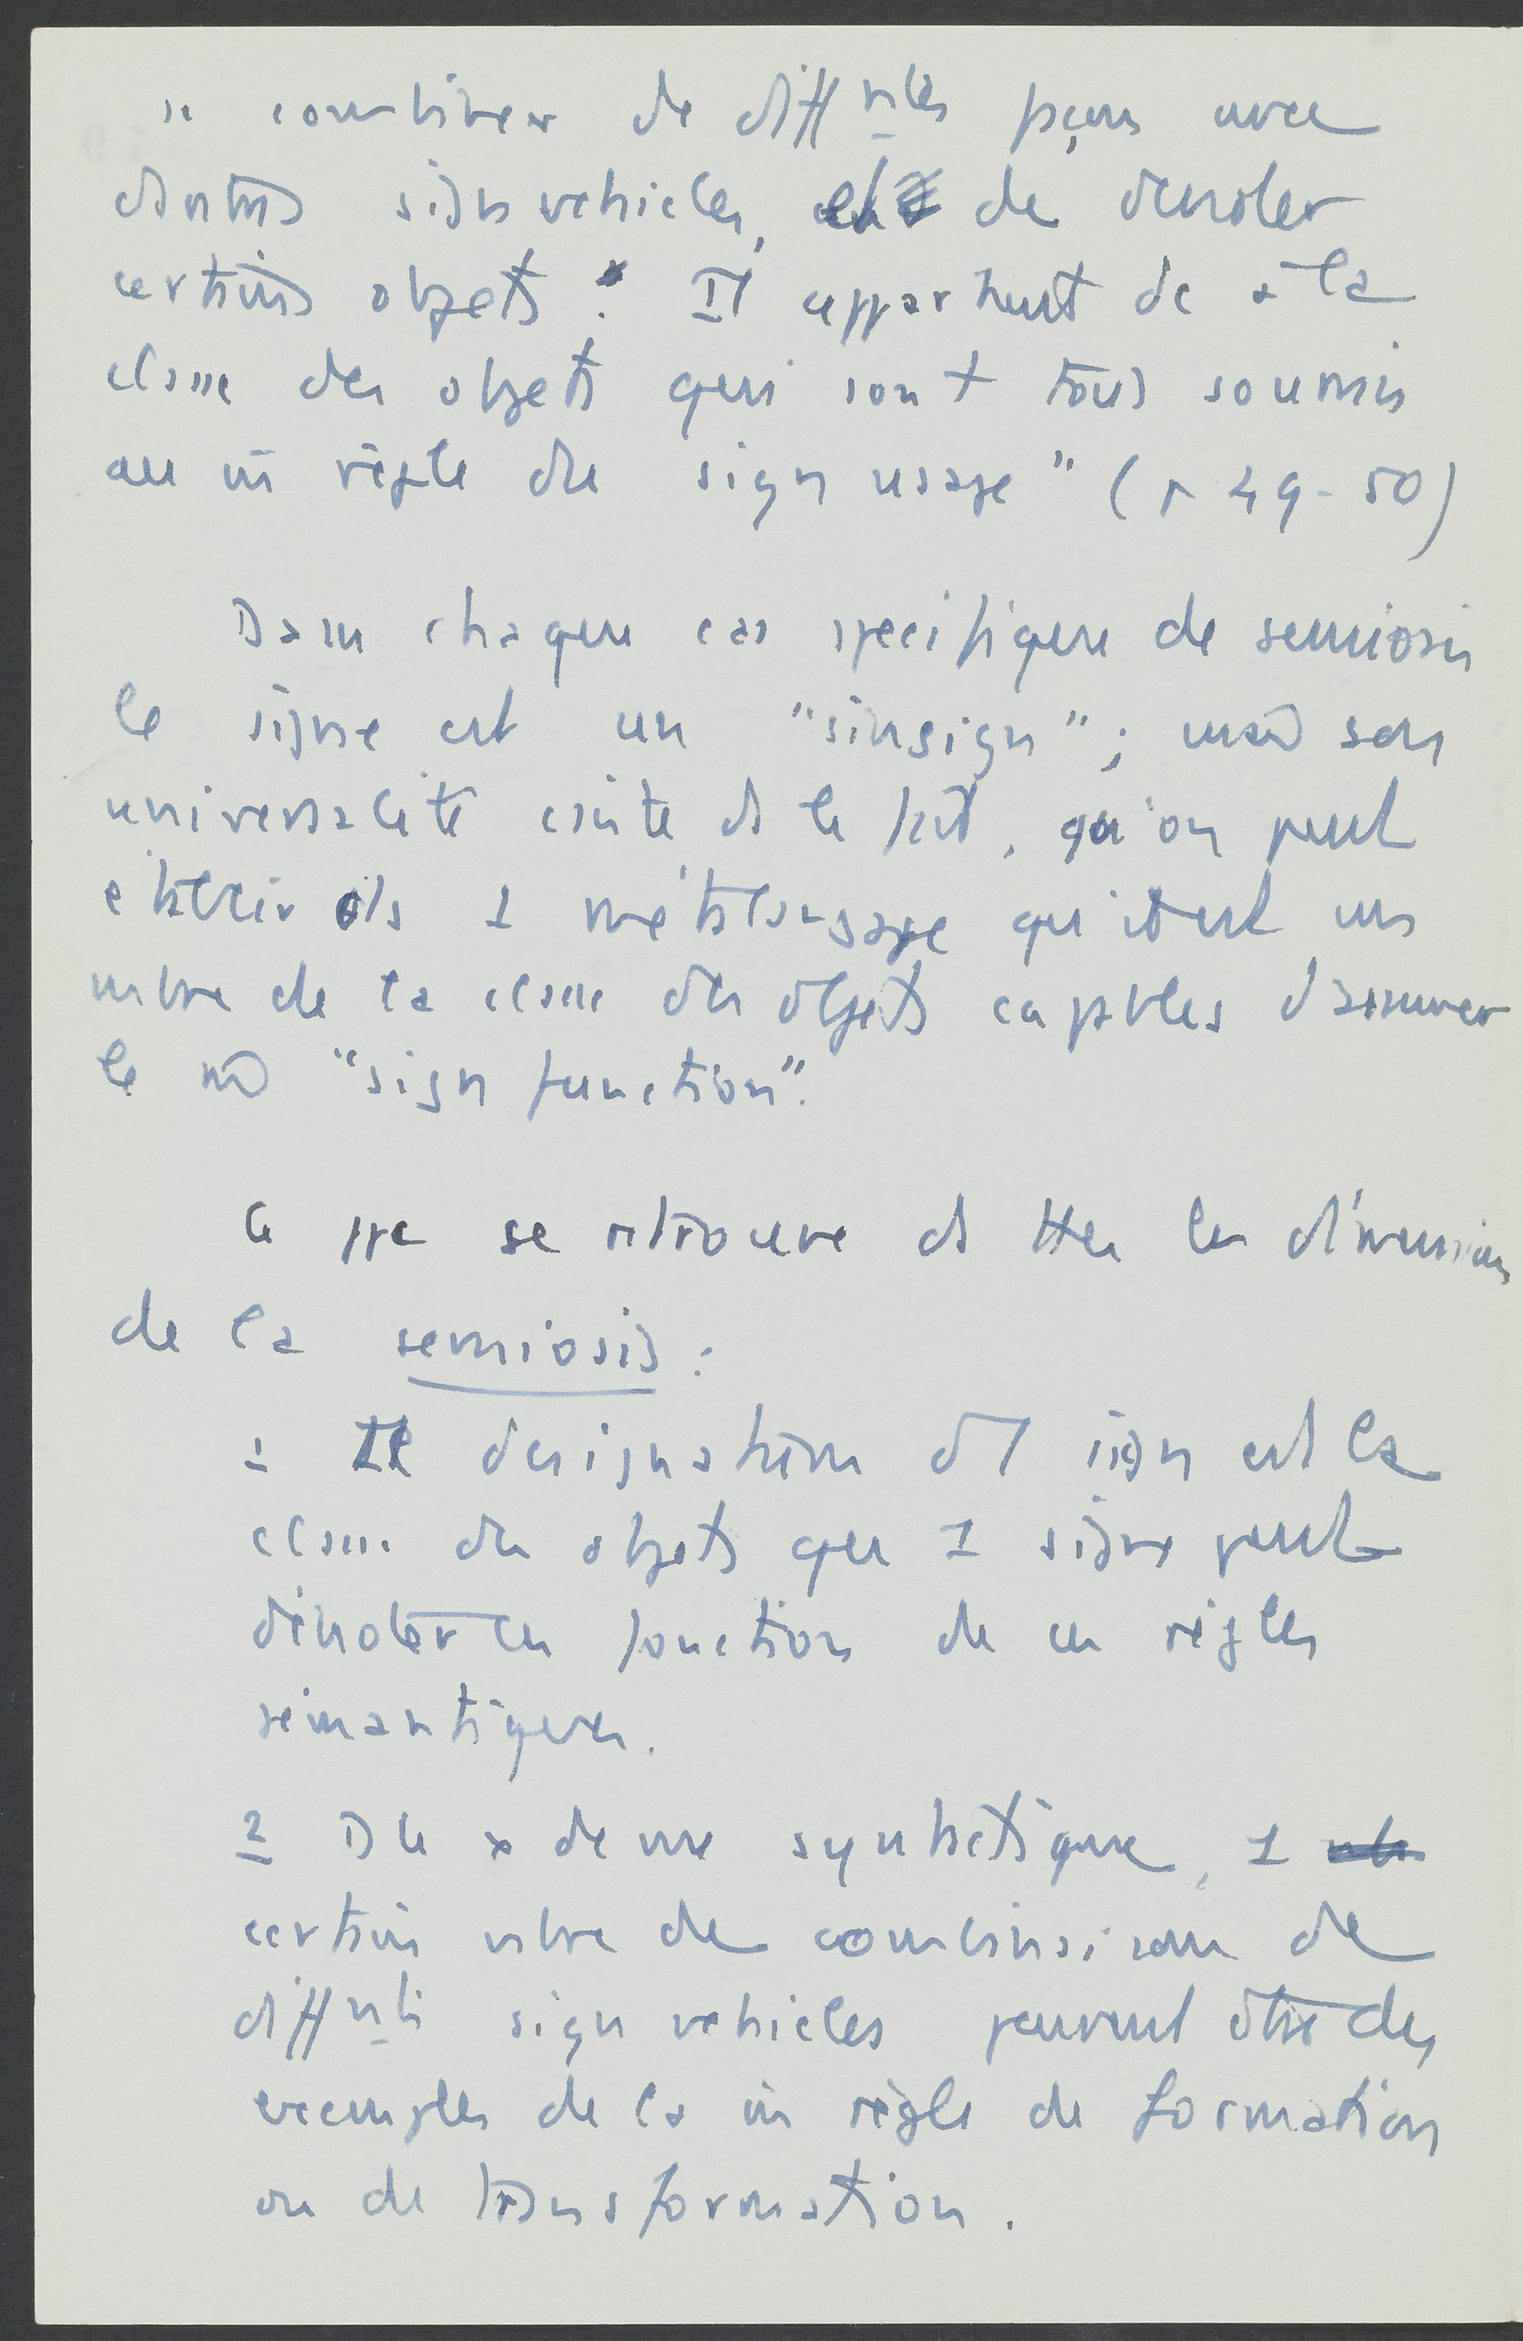 se combiner de diffntes façons avec
dautres sign vehicles, de denoter
certains objets. Il appartient de à la
classe des objets qui sont tous soumis
au m̄ règle du sign usage" (p 49-50)
Dans chaque cas specifique de semiosis
le signe est un "sinsign"; mais son
universalité cste ds le fait, qu'on peut
établir ds 1 métalangage qu'il est un
mbre de la classe des objets capables d'assumer
le m̄ "sign function".
Ce se retrouve ds ttes les dimensions
de la semiosis:
1 designatum d'1 sign est la
classe des objets que 1 signe peut
dénoter en fonction de ces règles
sémantiques.
2 Ds le de vue syntactique, 1
certain nbre de combinaisons de
diffnts sign vehicles peuvent être des
exemples de la m̄ règle de formation
ou de transformation.